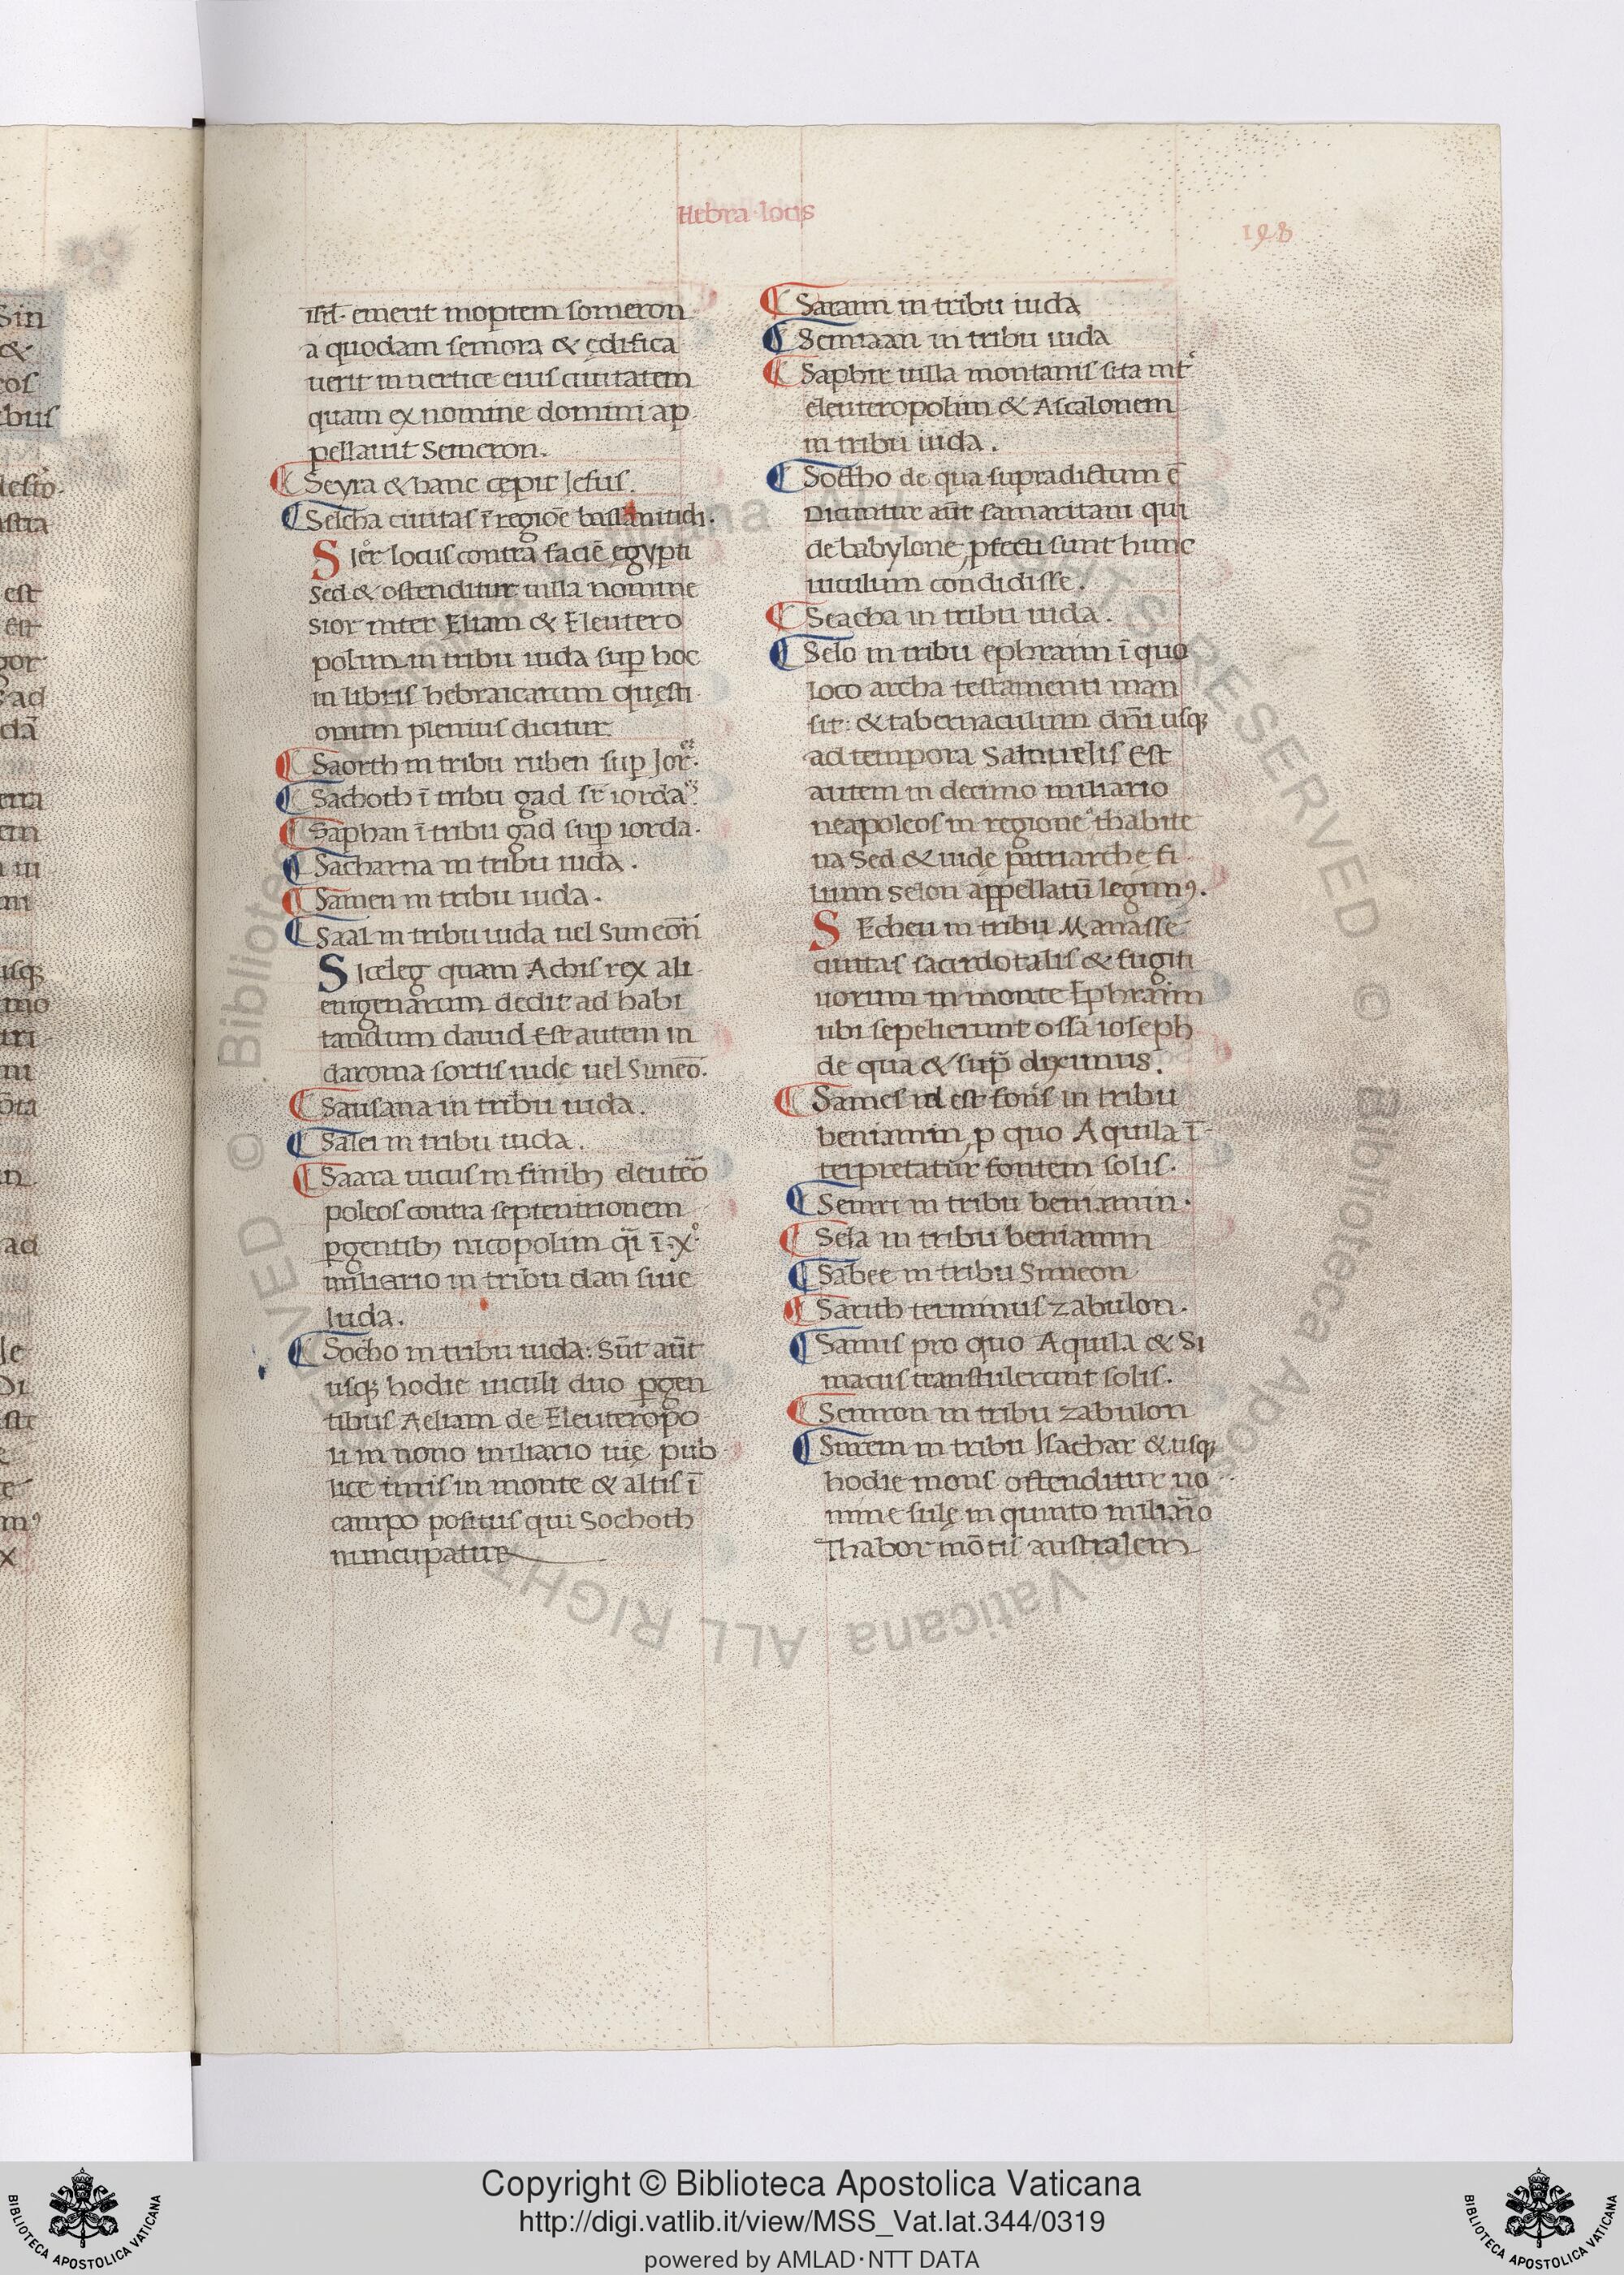 Hebra locis
198
isrł. emerit moptem someron
a quodam semora & ędifica
uerit in uertice eius ciuitatem
quam ex nomine domini ap
pellauit Semeron.
Seyra & hanc cępit Jesus.
Selcha ciuitas ī regiōe
S ier locus contra faciē ęgypti
sed & ostenditur uilla nomine
sior inter Eliam & Eleutero
polim in tribu iuda sup hoc
in libris hebraicarum quęsti
onum plenius dicitur.
Saorth in tribu ruben sup
Sachoth ī tribu gad iorda
Saphan ī tribu gad sup iorda.
Sacharna in tribu iuda.
Samen in tribu iuda.
Saal in tribu iuda uel Simeon
S iceleg quam Achis rex ali
enigenarum dedit ad habi
tandum dauid Est autem in
daroma sortis iudę uel Simeō.
Sausana in tribu iuda.
Salei in tribu iuda.
Saara uicus in finibꝫ
poleos contra septentrionem
pgentibꝫ nicopolim ī. x°
miliario in tribu dan siue
Iuda.
Socho in tribu iuda: Sūt aūt
usqꝫ hodie uiculi duo pgen
tibus Aeliam de Eleuteropo
li in nono miliario uię pub
licę in monte & altis ī
campo positus qui Sochoth
nuncupatur
Saraim in tribu iuda
Sennaan in tribu iuda
Saphir uilla montanis sita int̄
eleuteropolim & Ascalonem
in tribu iuda.
Soccho de qua supradictum ē
Dicuntur aūt samaritani qui
de babylone pfecti sunt hunc
uiculum condidisse.
Seacha in tribu iuda.
Selo in tribu ephraim ī quo
loco archa testamenti man
sit: & tabernaculum dn̄i usqꝫ
ad tempora Samuelis Est
autem in decimo miliario
neapoleos in regione
na Sed & iudę patriarchę fi
lium selon appellatū legimꝰ.
S Echeu in tribu Manasse
ciuitas sacerdotalis & fugiti
uorum in monte Ephraim
ubi sepelierunt ossa ioseph
de qua & sup̄ diximus.
Sames id est fons in tribu
beniamin p quo Aquila ī
terpretatur fontem solis.
Semri in tribu beniamin.
Sela in tribu beniamin
Sabee in tribu Simeon
Sarith terminus zabulon.
Samis pro quo Aquila & Si
macus transtulerunt solis.
Semron in tribu zabulon
Surem in tribu Isachar & usqꝫ
hodie mons ostenditur no
mine sulę in quinto
Thabor mōtis australem
Copyright © Biblioteca Apostolica Vaticana
http://digi.vatlib.it/view/MSS_Vat.lat.344/0319
powered by AMLAD·NTT DATA
BIBLIOTECA APOSTOLICA VATICANA
BIBLIOTECA APOSTOLICA VATICANA